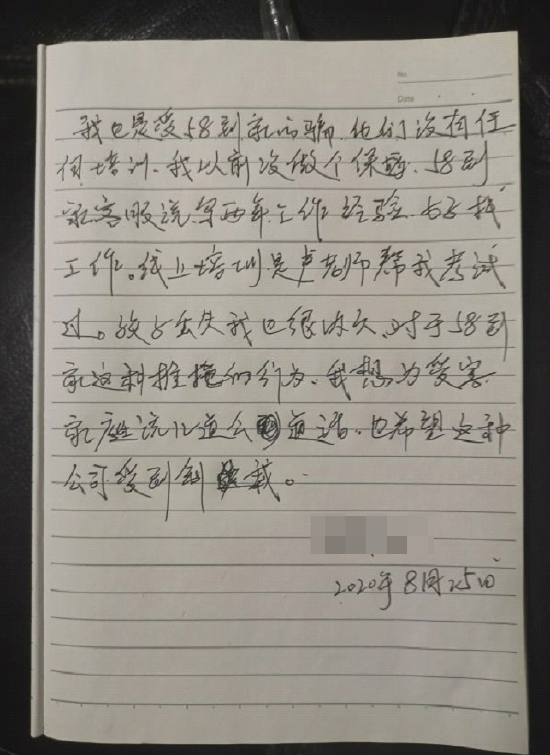 No
Date
我也是受58到家的骗,他们没有任
何培训、我以前没做个保姆、58到
家客服说写两年工作经验、好找
工作。线上培训是卢老师帮我考试
过。孩子丢失我也很内疚、对于58到
家这种推掩的行为、我想为受害
家庭说几道公道话、也希望这种
公司受到制裁。
2020年8月25日